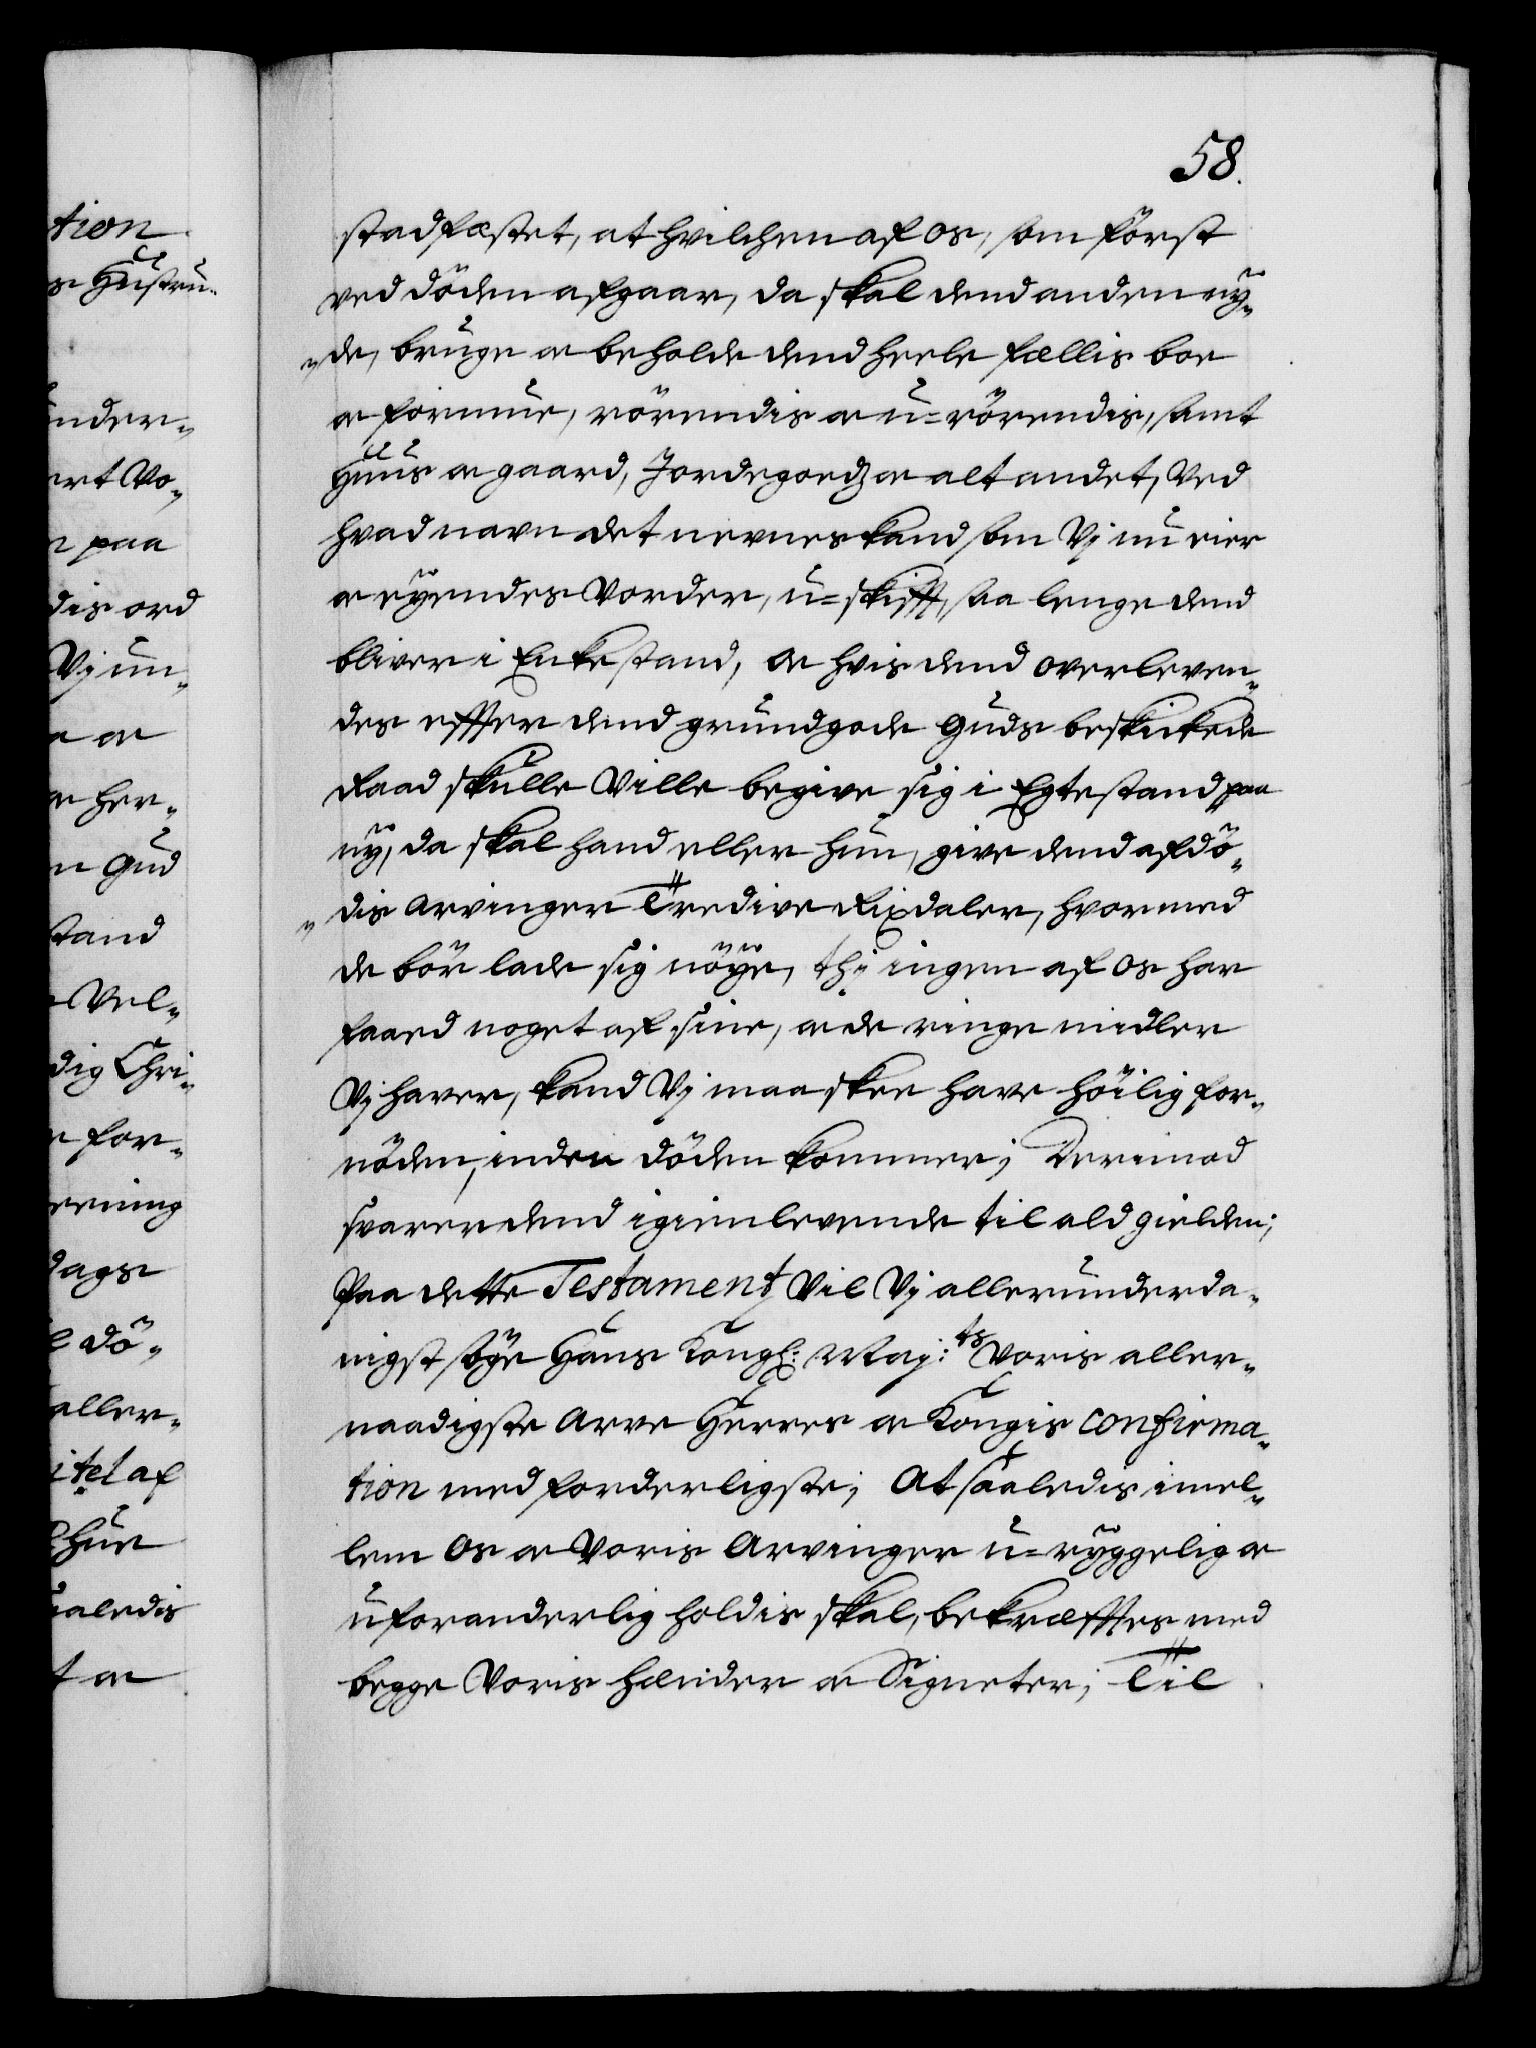 58.
stadfæstet, at hvilchen af os, som först
ved döden afgaar, da skal dend anden ny¬
de, bruge oc beholde dend heele fællis boe
oc formue, rörendis oc u-rörendis, samt
Huus oc gaard, Jordegodz oc alt andet, Ved
hvad navn det nevnes kand som Vj nu eier
oc eyendes Vorder, u-skifft, saa lenge dend
bliver i Enkestand, oc hvis dend overleven¬
des effter dend grundgode Guds beskickede
Raad skulle Ville begive sig i Egtestand paa
ny, da skal hand eller hun, give dend afdö¬
dis arvinger Tredive Rixdaler, hvormed
de bör lade sig nöye, thj ingen af os har
faaed noget af sine, oc de ringe midler
Vj haver, kand Vj maa skee have höilig for¬
nöden, inden döden kommer; Derimod
svarer dend igienlevende til ald gielden;
Paa dette Testament Vil Vj allerunderda¬
nigst söge Hans Kongl: May:ts Voris aller¬
naadigste Arve Herres oc Kongis confirma¬
tion med forderligste; At saaledis imel¬
lem Os oc Voris Arvinger u-ryggelig oc
uforanderlig holdis skal, bekræfftes med
begge Voris hænder oc Signeter; Til
tion
s Hustru
under¬
ert Vo¬
n paa
dis ord
Vj un¬
oc
oc her¬
n Gud
stand
Vel¬
dig Chri¬
for¬
erning
dags
dö¬
aller¬
itel af
hun
saaledis
t oc